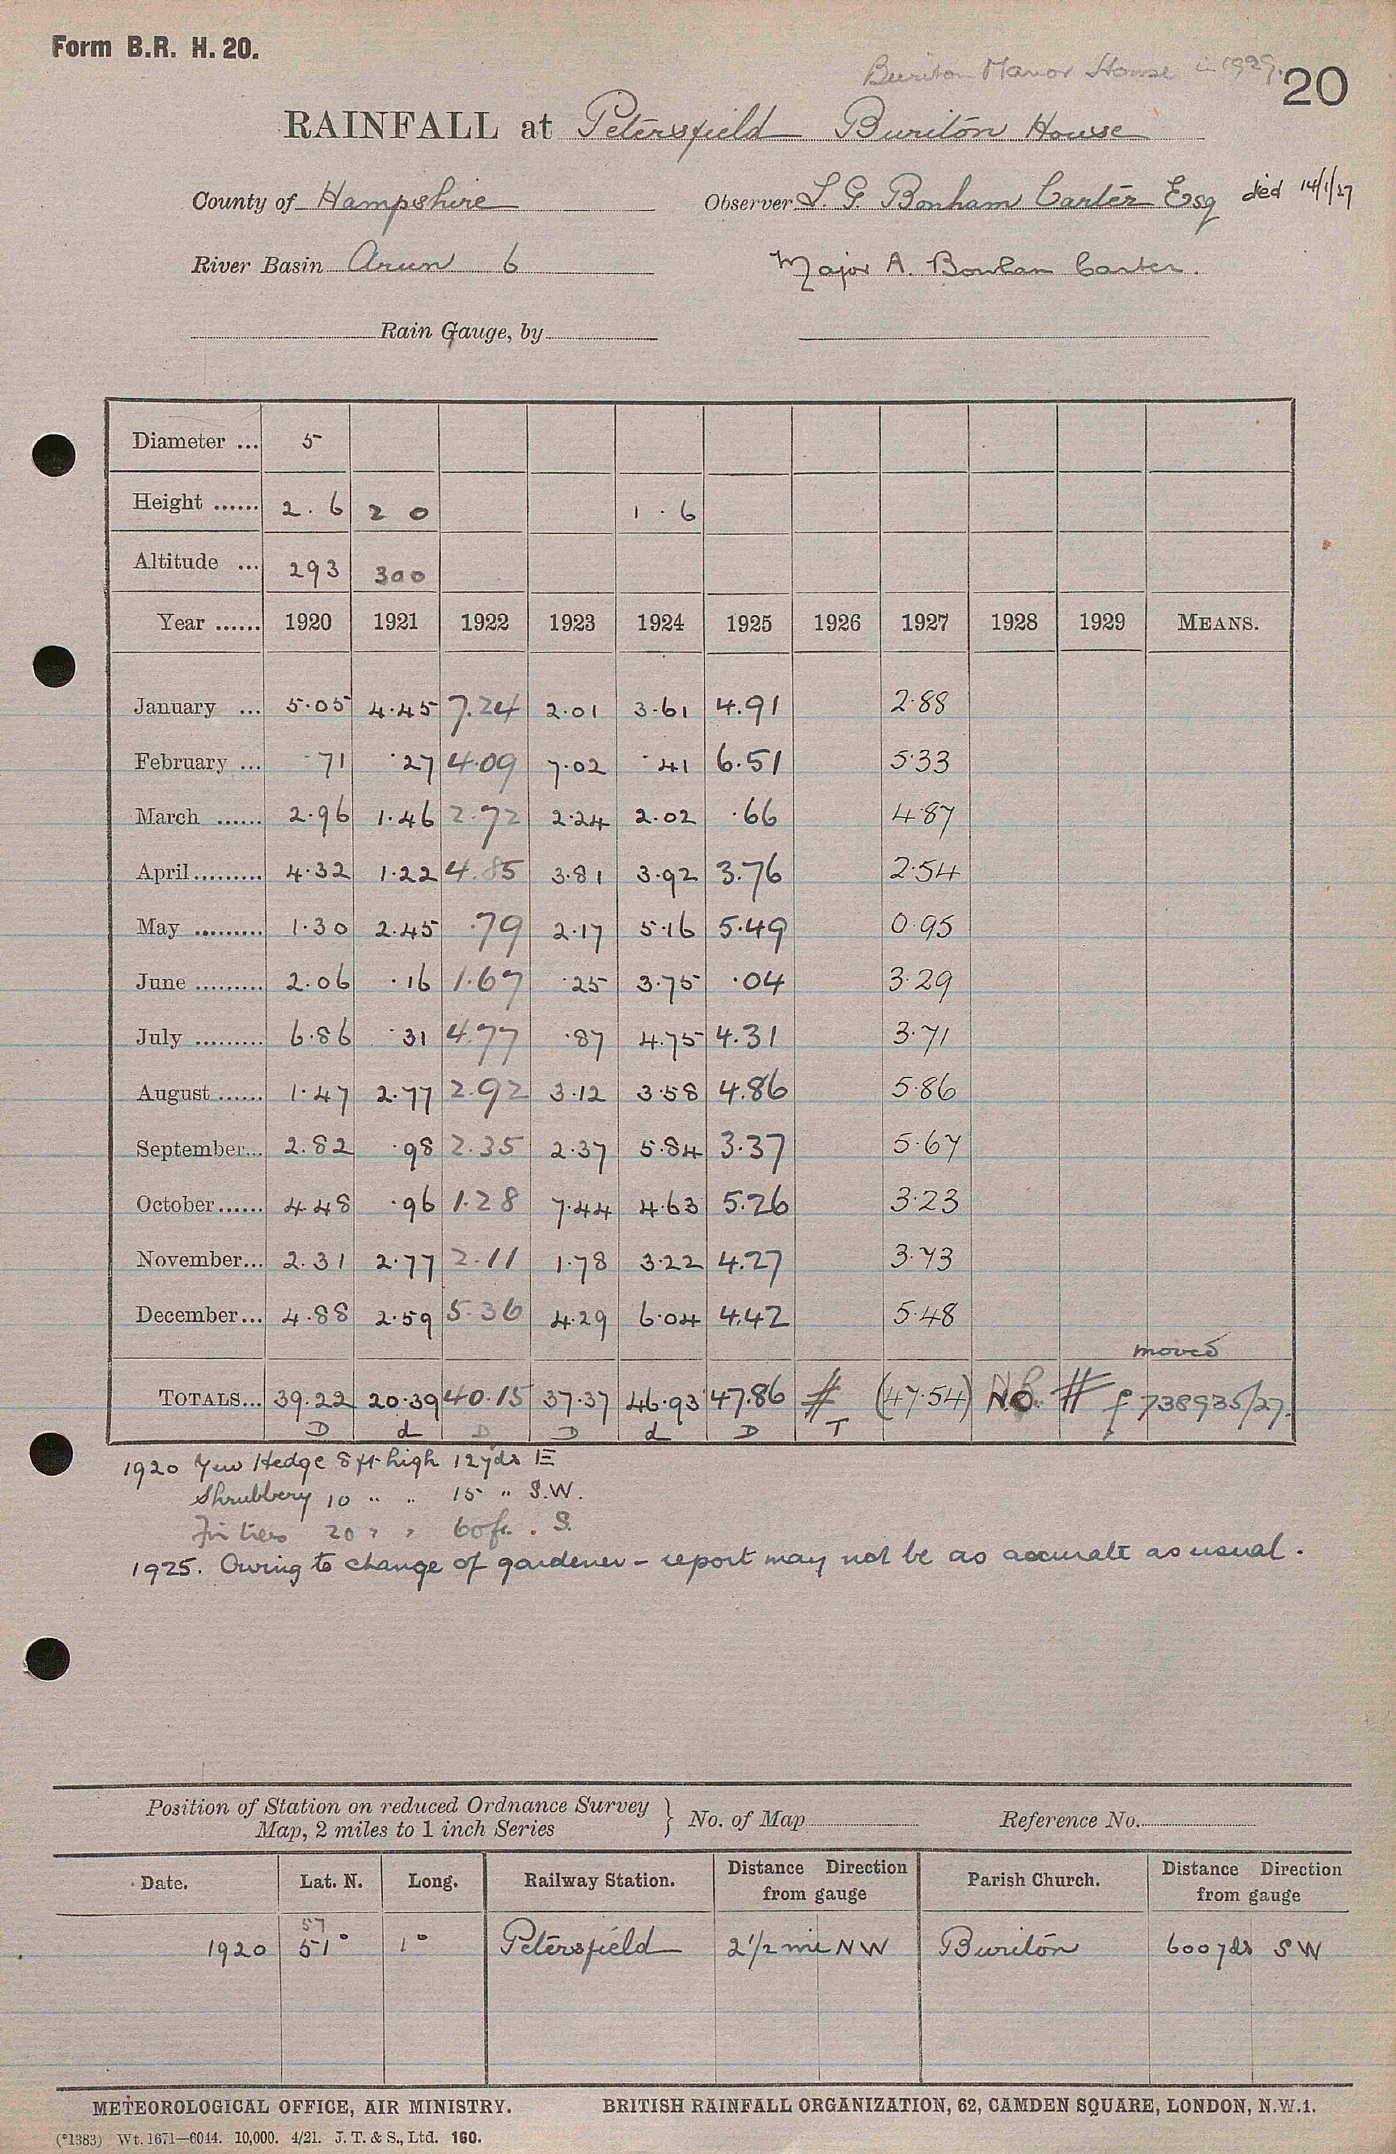 Form B.R. H. 20.
Buriton Manor House in 1929.
20
RAINFALL at Petersfield Buriton House
County of Hampshire Observer L. G. Bonham Carter Esq died 14/1/27
River Basin Arun 6 Major A. Bonham Carter.
Rain Gauge, by
Diameter ... 5
Height ...... 2.6 2 0 1.6
Altitude ... 293 300
Year ...... 1920 1921 1922 1923 1924 1925 1926 1927 1928 1929 MEANS.
January ... 5.05 4.45 7.24 2.01 3.61 4.91 2.88
February ... .71 .27 4.09 7.02 .41 6.51 5.33
March ...... 2.96 1.46 2.72 2.24 2.02 .66 4.87
April ......... 4.32 1.22 4.85 3.81 3.92 3.76 2.54
May ......... 1.30 2.45 .79 2.17 5.16 5.49 0.95
June ......... 2.06 .16 1.67 .25 3.75 .04 3.29
July ......... 6.86 .31 4.77 .87 4.75 4.31 3.71
August ...... 1.47 2.77 2.92 3.12 3.58 4.86 5.86
September... 2.82 .98 2.35 2.37 5.84 3.37 5.67
October...... 4.48 .96 1.28 7.44 4.63 5.26 3.23
November... 2.31 2.77 2.11 1.78 3.22 4.27 3.73
December... 4.88 2.59 5.36 4.29 6.04 4.42 5.48
moved
TOTALS... 39.22 20.39 40.15 37.37 46.93 47.86 # (47.54) No. # f 738935/27.
D d D D d D T
1920 Yew Hedge 8 ft high 12 yds E
Shrubbery 10 " " 15 " S.W.
Fir trees 20 " " 60 ft. S.
1925. Owing to change of gardener - report may not be as accurate as usual.
Position of Station on reduced Ordnance Survey
Map, 2 miles to 1 inch Series } No. of Map Reference No.
Date. Lat. N. Long. Railway Station. Distance Direction from gauge Parish Church. Distance Direction from gauge
57
1920 51° 1° Petersfield 2 1/2 mi NW Buriton 600 yds SW
METEOROLOGICAL OFFICE, AIR MINISTRY. BRITISH RAINFALL ORGANIZATION, 62, CAMDEN SQUARE, LONDON, N.W.1.
(*1383) Wt. 1671—6044. 10,000. 4/21. J. T. & S., Ltd. 160.